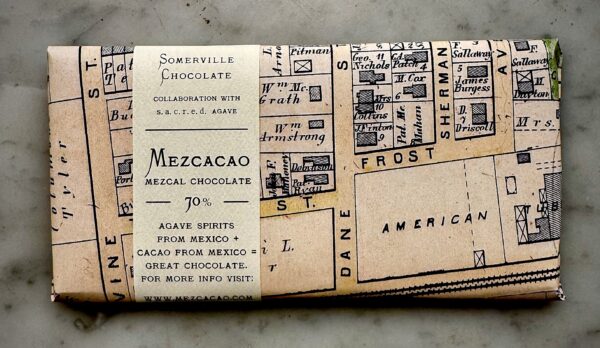 SOMERVILLE
CHOCOLATE
COLLABORATION WITH
s.a.c.r.e.d. AGAVE
MEZCACAO
MEZCAL CHOCOLATE
70%
AGAVE SPIRITS
FROM MEXICO +
CACAO FROM MEXICO =
GREAT CHOCOLATE.
FOR MORE INFO VISIT:
WWW.MEZCACAO.COM
ST.
Tyler
VINE
Pitman
Wm Mc.
Grath
Wm
Armstrong
ST.
DANE
S
Geo. 11
Nichols
Patch
M. Cox
Pal. Mc.
Mahan
FROST
SHERMAN
AV
F.
Sallaway
James
Burgess
D.
Driscoll
F.
Sallaway
Mrs.
AMERICAN